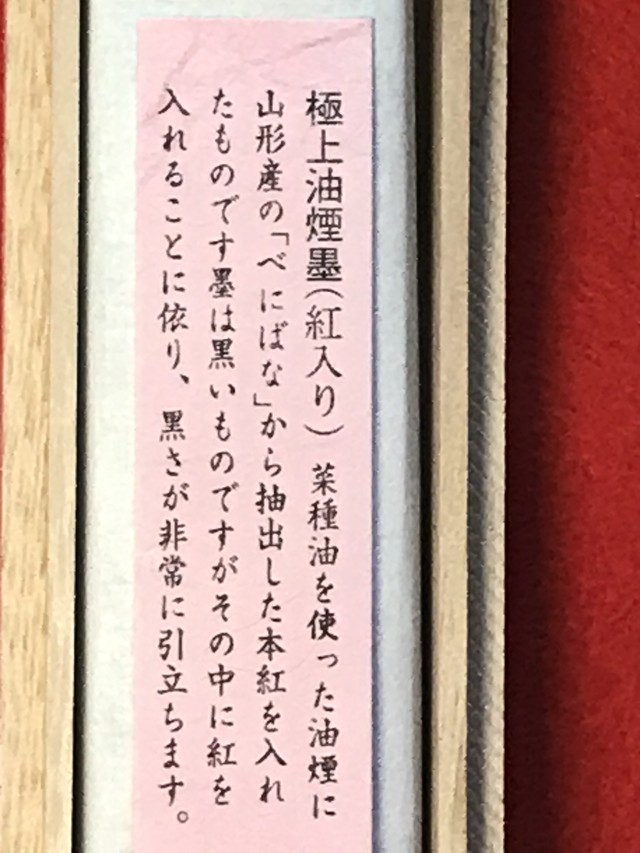 極上油煙墨(紅入り) 菜種油を使った油煙に
山形産の「べにばな」から抽出した本紅を入れ
たものです墨は黒いものですがその中に紅を
入れることに依り、黒さが非常に引立ちます。